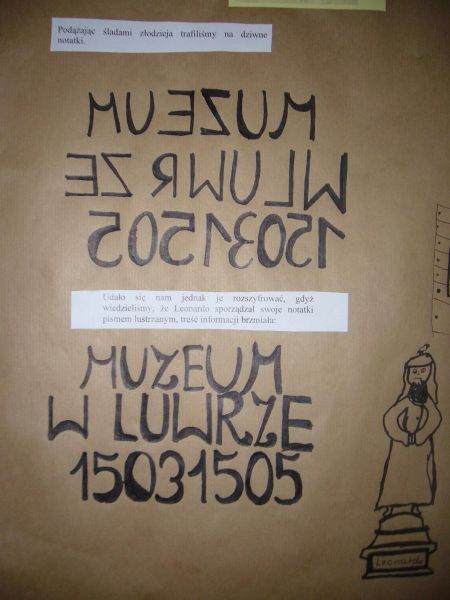 Podążając śladami złodzieja trafiliśmy na dziwne
notatki.
MUZEUM
W LUWRZE
15031505
Udało się nam jednak je rozszyfrować, gdyż
wiedzieliśmy, że Leonardo sporządzał swoje notatki
pismem lustrzanym, treść informacji brzmiała:
MUZEUM
W LUWRZE
15031505
Leonardo